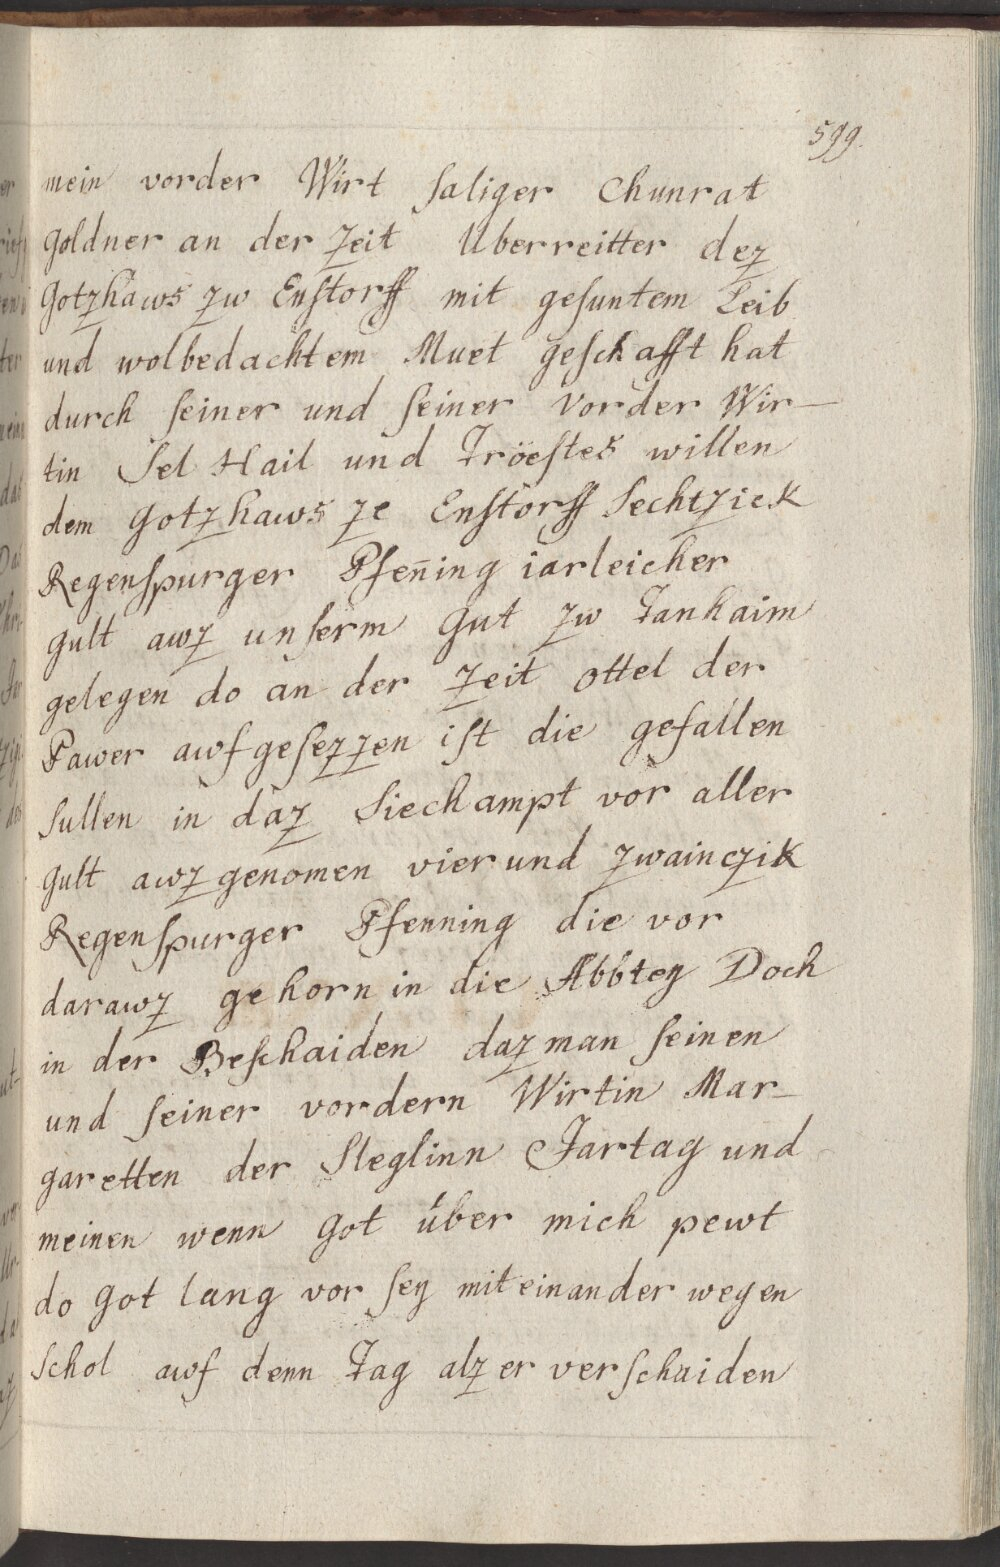 599.
mein vorder Wirt saliger Chunrat
Goldner an der Zeit Uberreitter dez
Gotzhaws zw Enstorff mit gesuntem Leib
und wolbedachtem Muet geschafft hat
durch seiner und seiner vorder Wir-
tin Sel Hail und Tröestes willen
dem Gotzhaws ze Enstorff Sechtzick
Regenspurger Pfen̄ing iarleicher
gult awz unserm Gut zw Tanhaim
gelegen do an der Zeit Ottel der
Pawer awfgesezzen ist die gefallen
sullen in daz Siechampt vor aller
gult awzgenomen vier und zwainczik
Regenspurger Pfenning die vor
darawz gehorn in die Abbtey Doch
in der Beschaiden daz man seinen
und seiner vordern Wirtin Mar-
garetten der Sleglinn Jartag und
meinen wenn Got über mich pewt
do Got lang vor sey miteinander wegen
schol awf denn Tag alz er verschaiden